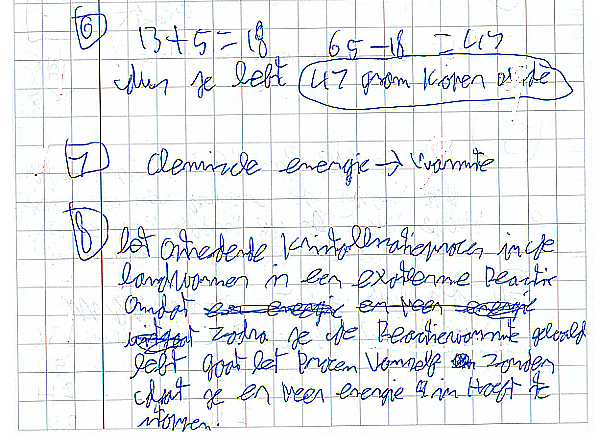 6 13+5=18 65-18 = 47
dus je hebt 47 gram koperoxide
7 Chemische energie → Warmte
8 Het omkerende kristallisatieproces in de
handwarmer is een exotherme Reactie
Omdat
zodra je de Reactiewarmte gehaald
hebt gaat het Proces Vanzelf zonder
dat je er meer energie in Hoeft te
stoppen.